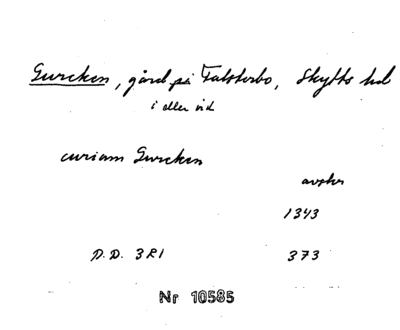 Gurcken, gård på Falsterbo, Skytts hd
i eller vid
curiam Gurcken
avskr
1343
D.D. 3R1 373
Nr 10585